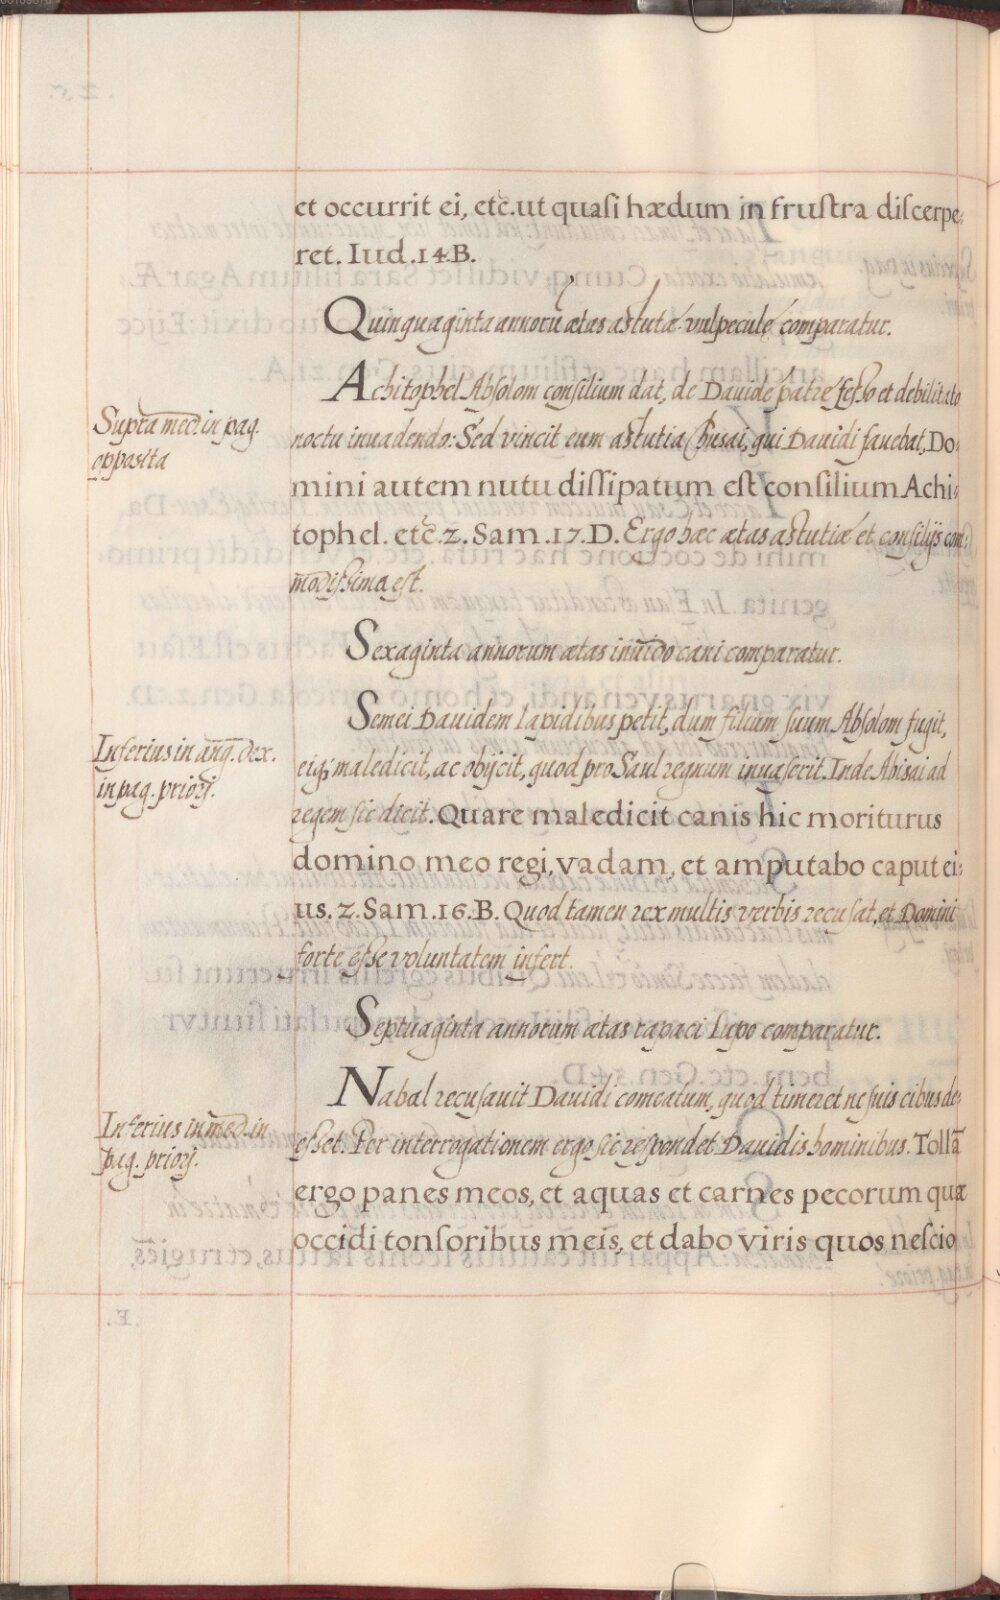 et occurrit ei, etc̄. ut quaſi hædum in fruſtra diſcerpe:
ret. Iud.14.B.
Quinquaginta annorū ætas astutæ vulpeculę comparatur.
Achitophel Abſolom conſilium dat, de Dauide patre feſſo et debilitato
Supra med̄. in pag.
opposita
noctu inuadendo: Sed vincit eum astutia Chusai, qui Dauidi fauebat, Do:
mini autem nutu diſſipatum eſt conſilium Achi:
tophel. etc̄. 2. Sam.17.D. Ergo hæc ætas astutiæ et conſilijs com:
modiſsima eſt.
Sexaginta annorum ætas inuido cani comparatur.
Semei Dauidem lapidibus petit, dum filium ſuum Abſolom fugit,
Inferius in ang̅. dex.
in pag. priori.
eiq; maledicit, ac obijcit, quod pro Saul regnum inuaſerit. Inde Abisai ad
regem ſic dicit. Quare maledicit canis hic moriturus
domino meo regi, vadam, et amputabo caput ei:
us. 2. Sam.16.B. Quod tamen rex multis verbis recuſat, et Domini
forte eſſe voluntatem infert.
Septuaginta annorum ætas rapaci Lupo comparatur.
Nabal recuſauit Dauidi comeatum, quod timeret ne ſuis cibus de:
Inferius in med̄. in
pag. priori.
eſſet. Per interrogationem ergo ſic reſpondet Dauidis hominibus. Tollā
ergo panes meos, et aquas et carnes pecorum quæ
occidi tonſoribus meis, et dabo viris quos neſcio